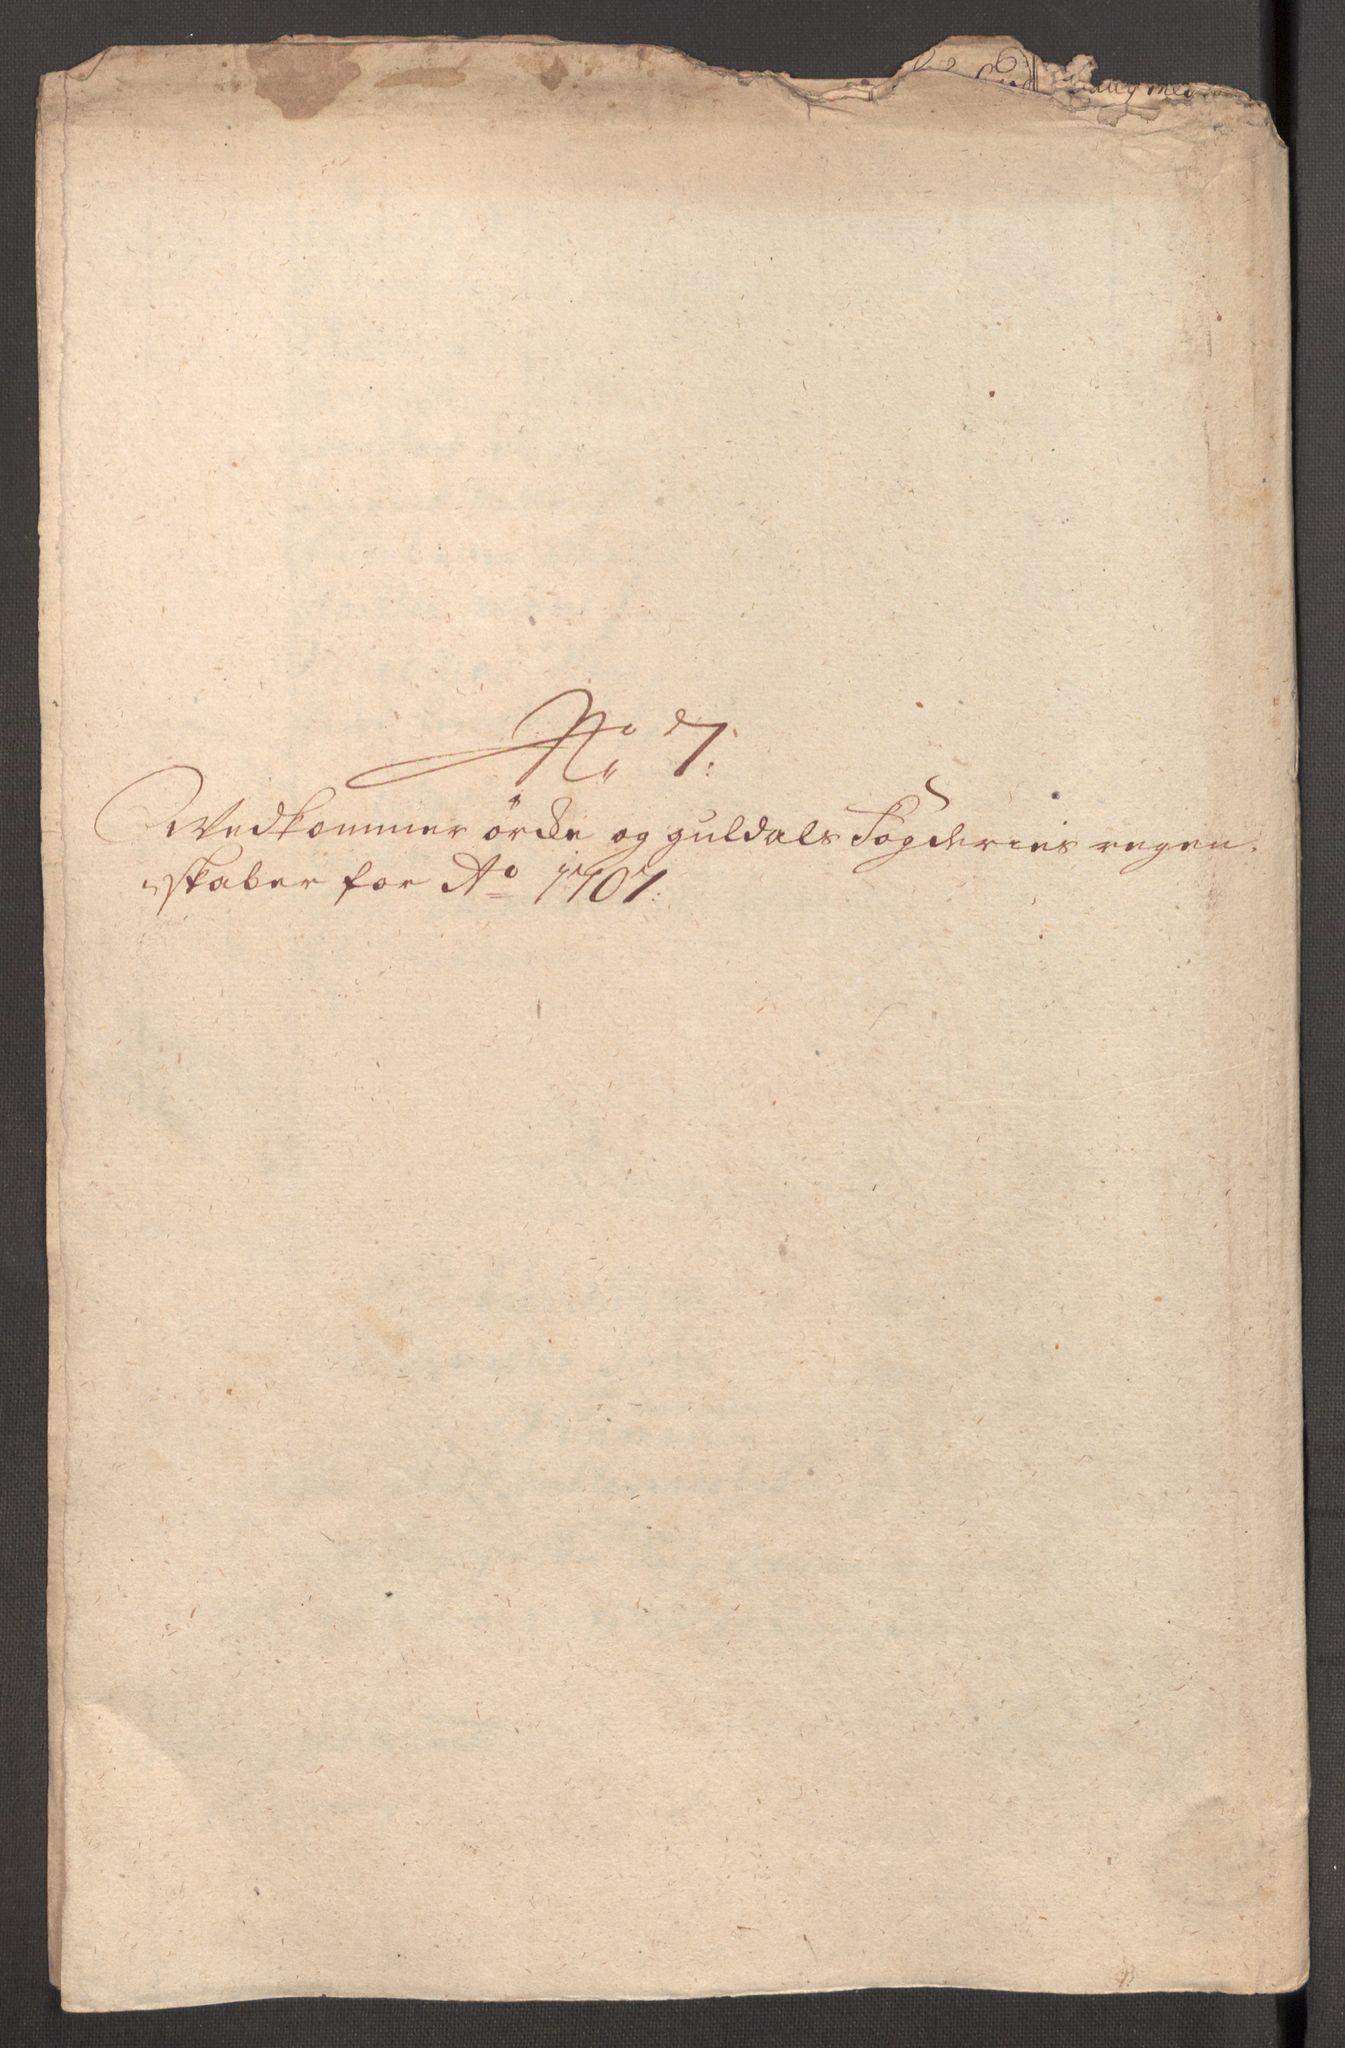 No 7:
Vedkommer örcke og guldals Fogderies regen-
skaber for Ao 1707: